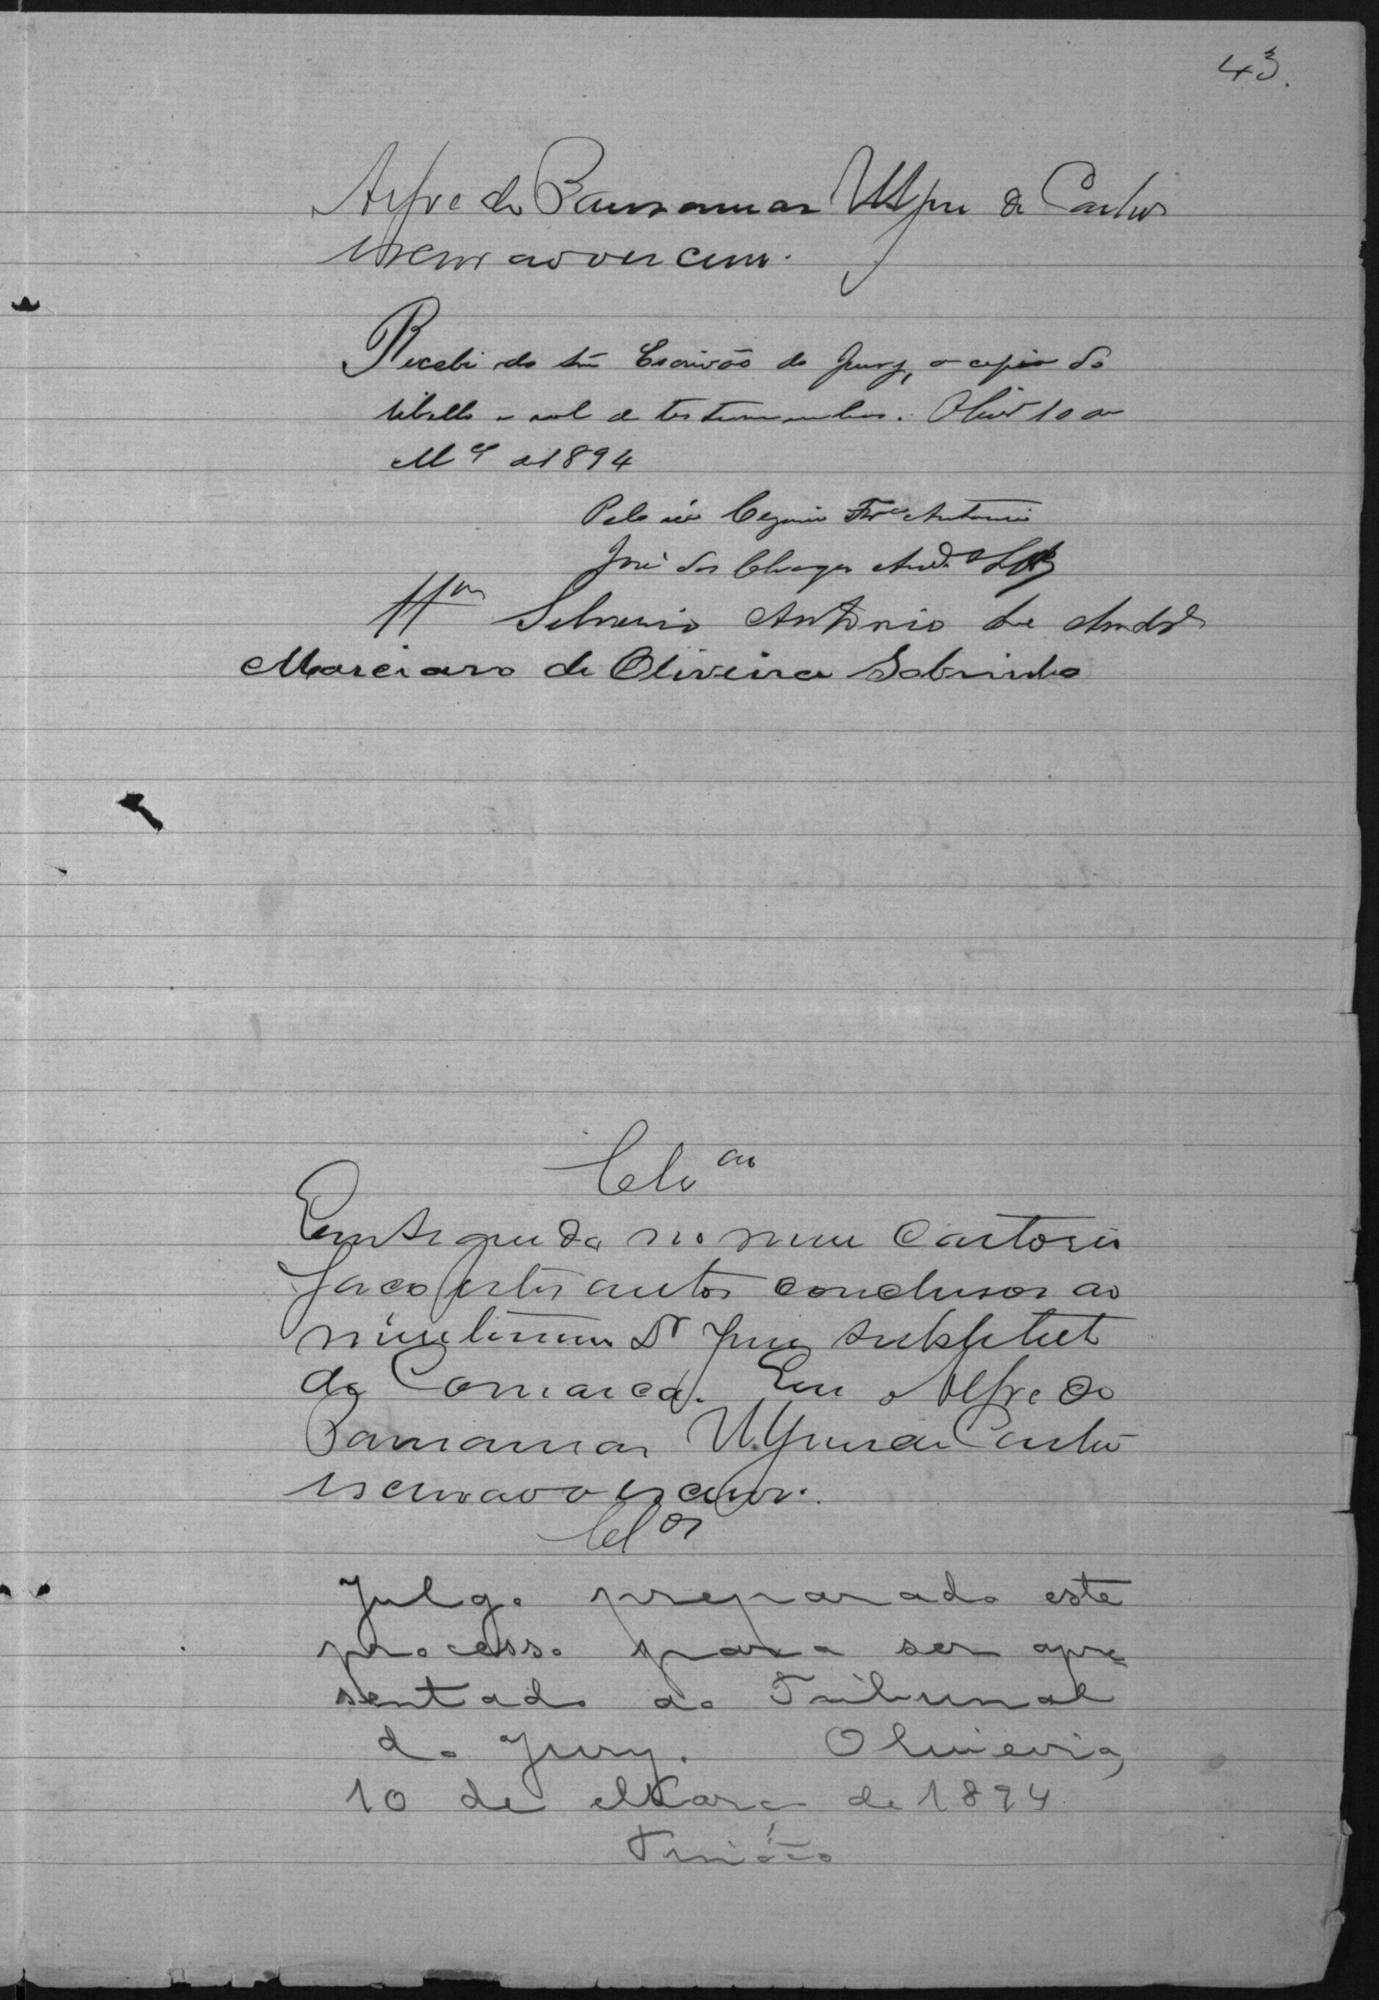 43.
Alfredo Pausanias Alfieri de Castro
escrivão o escrevi.
Recebi do Snr Escrivão do Jury, a copia do
libello e rol de testemunhas. Olivrª 10 de
Mço de 1894
Pelo réo Antonio
José das Chagas Andrª
Ttas Silverio Antonio de Andrª
Marciano de Oliveira Sobrinho
Clsão
Em seguida no meu Cartorio
faço estes autos conclusos ao
meritissimo Dr Juiz substituto
da Comarca. Eu Alfredo
Pausanias de Castro
escrivão o escrevi.
Clos
Julgo preparado este
processo para ser apre
sentado ao Tribunal
do Jury. Oliveira,
10 de Março de 1894